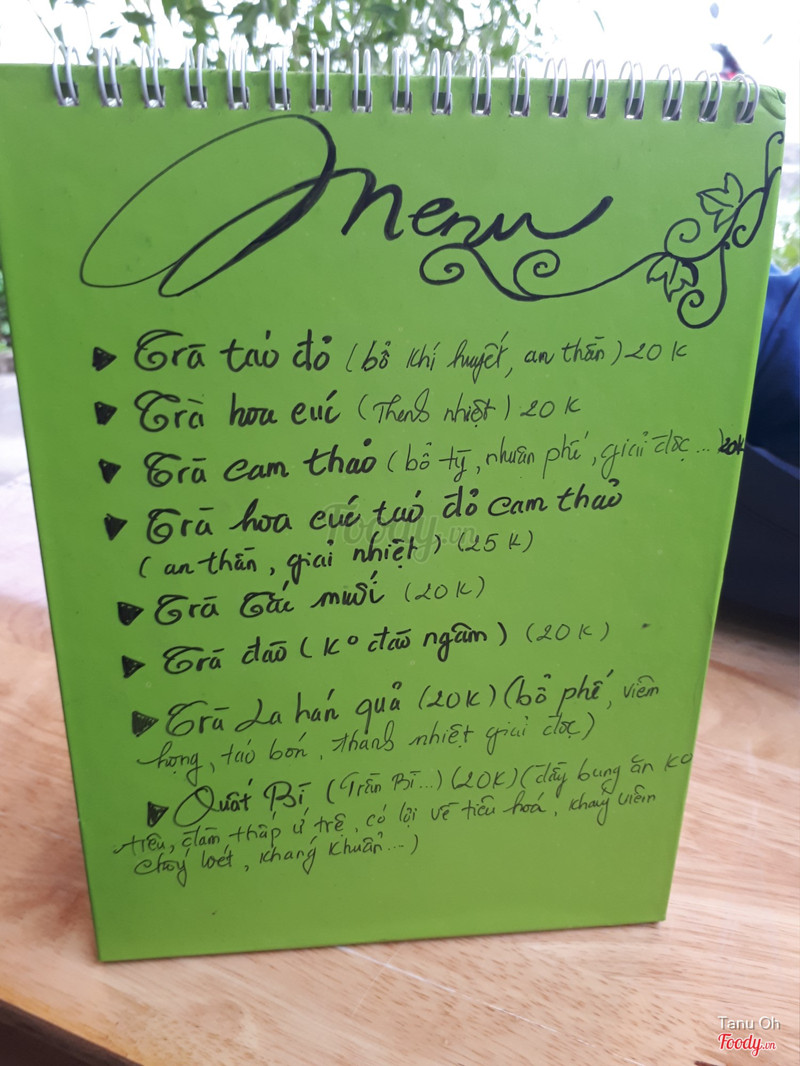 Menu
Trà táo đỏ (bổ khí huyết, an thần) 20K
Trà hoa cúc (Thanh nhiệt) 20K
Trà cam thảo (bổ tỳ, nhuận phế, giải độc...) 20K
Trà hoa cúc táo đỏ cam thảo
(an thần, giải nhiệt) (25K)
Trà Tắc muối (20K)
Trà đào (Ko đào ngâm) (20K)
Trà La hán quả (20K) (bổ phế, viêm
họng, táo bón, thanh nhiệt giải độc)
Quất Bì (Trần Bì...) (20K) (đầy bụng ăn ko
tiêu, đàm thấp ứ trệ, có lợi về tiêu hoá, kháng viêm
chống loét, kháng khuẩn...)
Foody.vn
Tanu Oh
Foody.vn